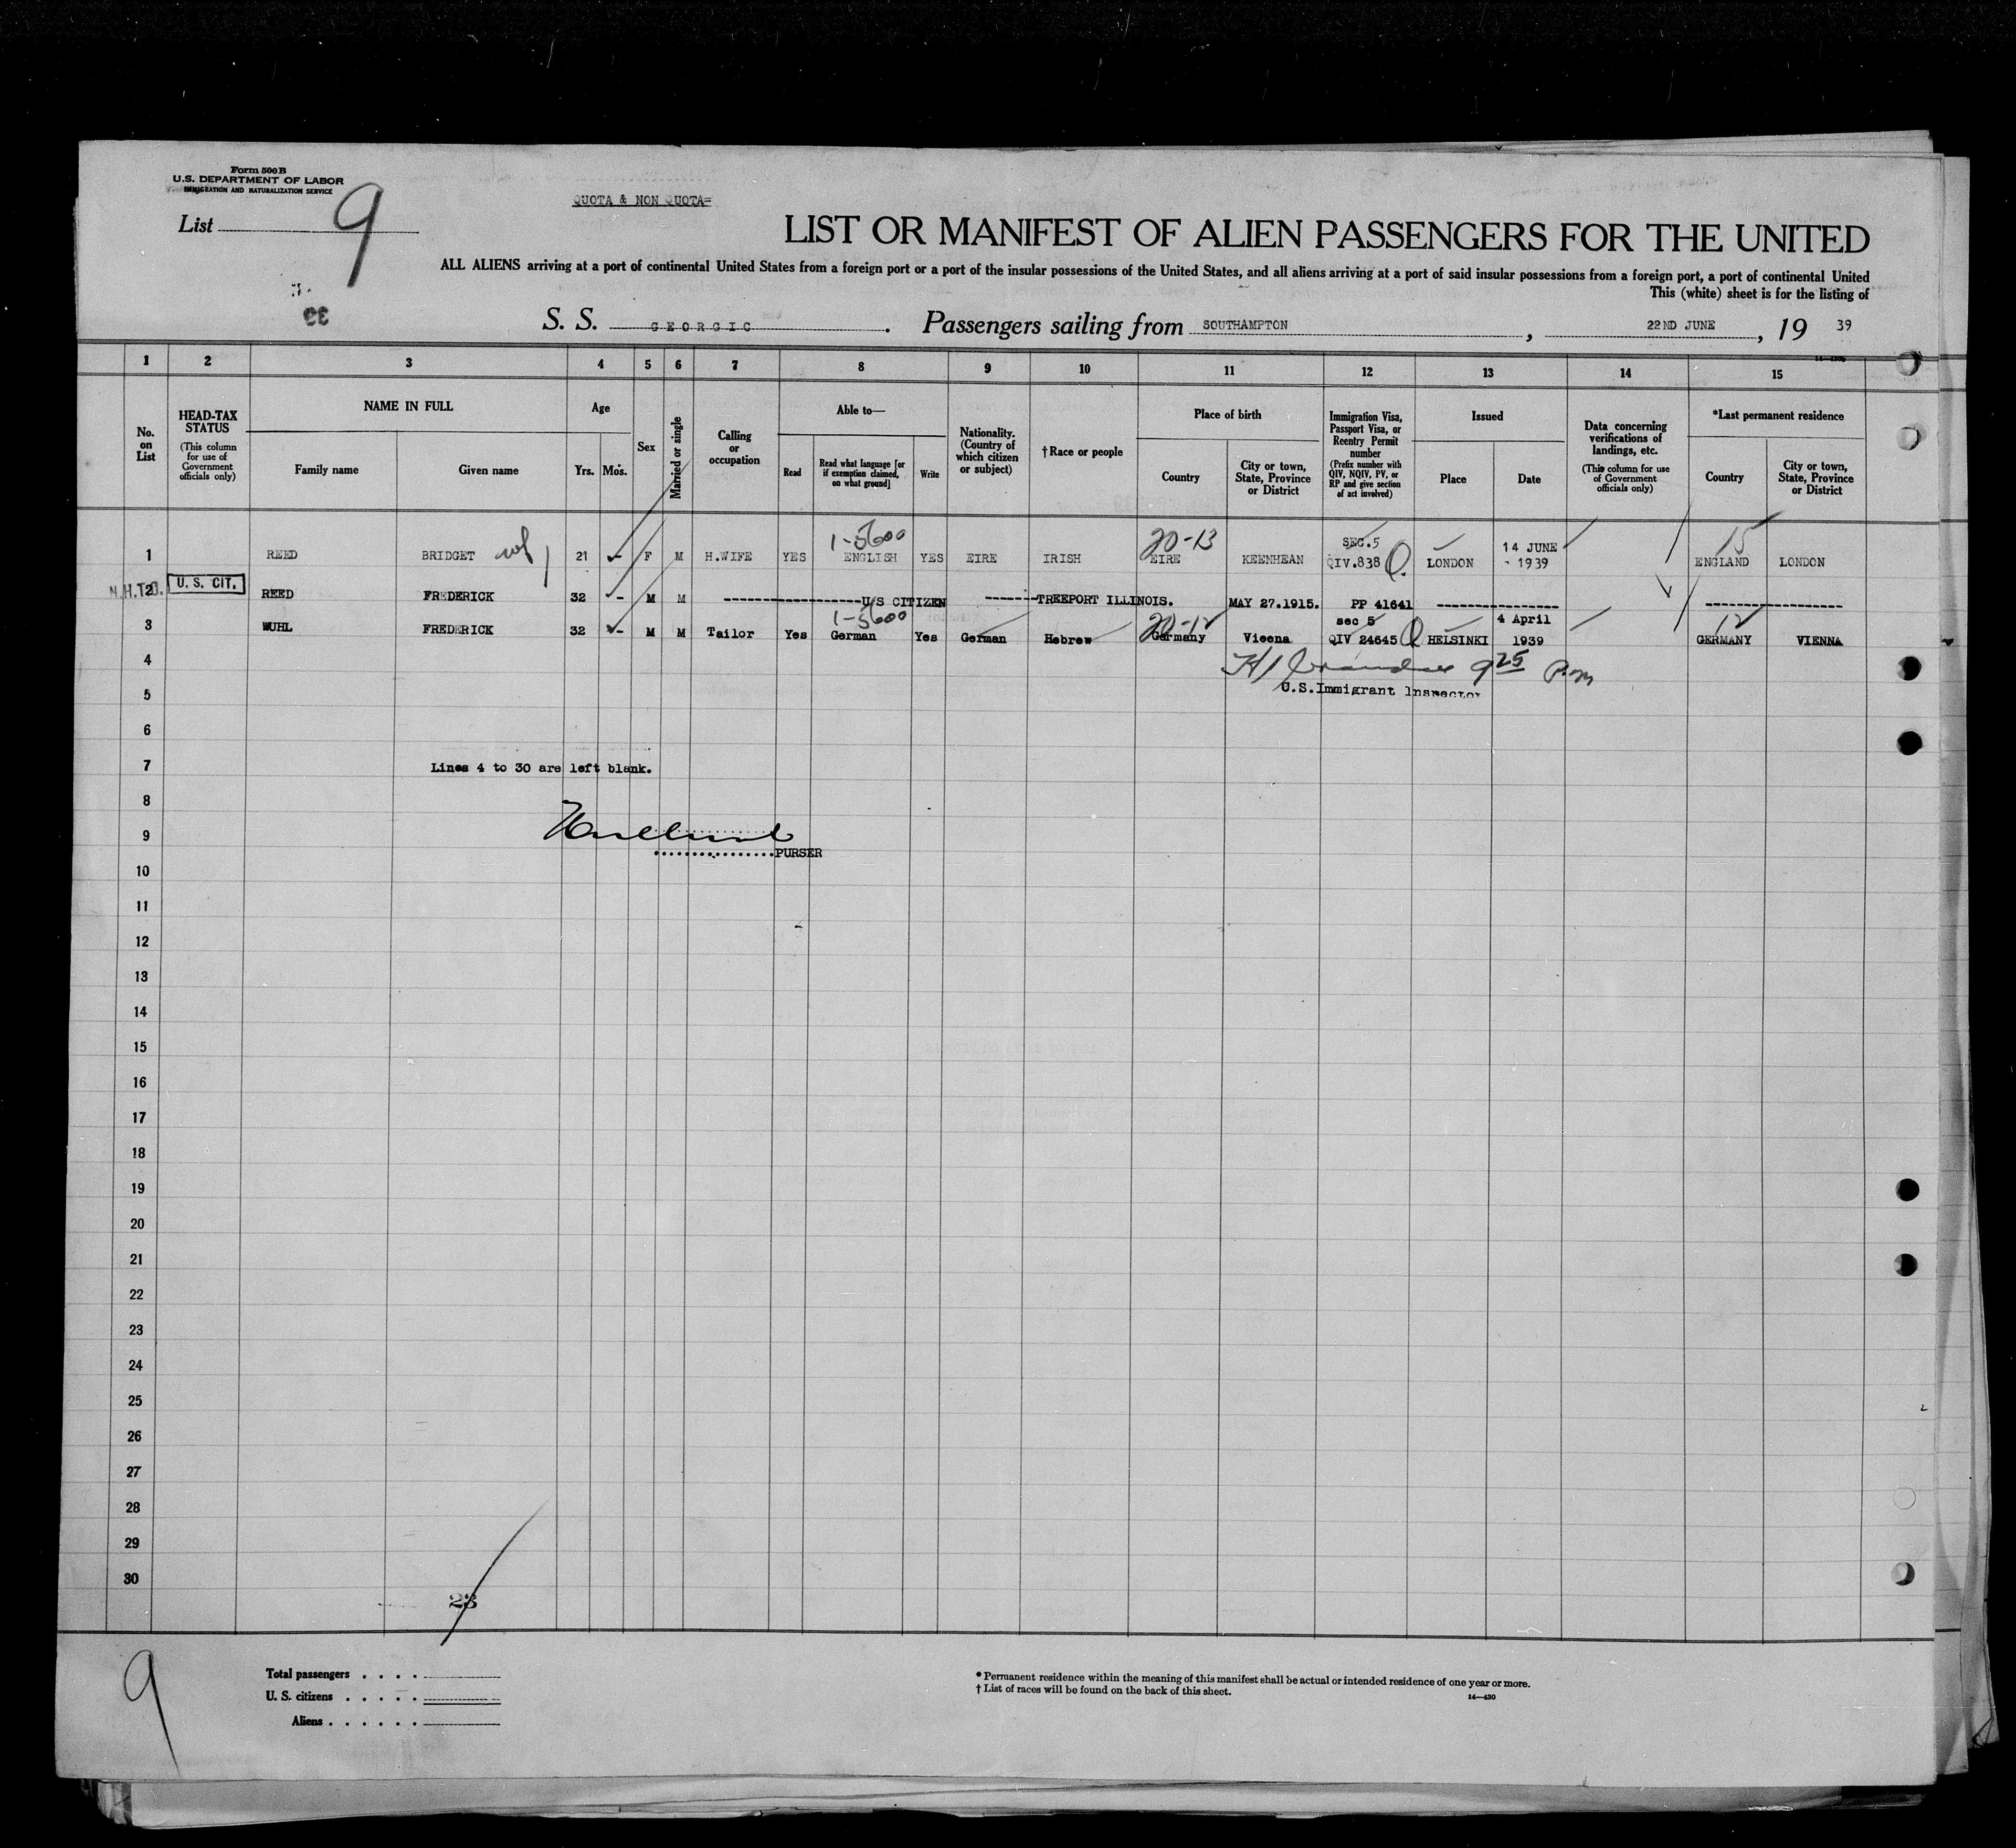 Form 500 B
U.S. DEPARTMENT OF LABOR
IMMIGRATION AND NATURALIZATION SERVICE
List 9
QUOTA & NON QUOTA=
LIST OR MANIFEST OF ALIEN PASSENGERS FOR THE UNITED
ALL ALIENS arriving at a port of continental United States from a foreign port or a port of the insular possessions of the United States, and all aliens arriving at a port of said insular possessions from a foreign port, a port of continental United
This (white) sheet is for the listing of
S. S. GEORGIC. Passengers sailing from SOUTHAMPTON, 22ND JUNE, 19 39
1 2 3 4 5 6 7 8 9 10 11 12 13 14 15
No. on List
HEAD-TAX STATUS (This column for use of Government officials only)
NAME IN FULL
Family name Given name
Age
Yrs. Mos.
Sex
Married or single
Calling or occupation
Able to—
Read Read what language [or if exemption claimed, on what ground] Write
Nationality. (Country of which citizen or subject)
†Race or people
Place of birth
Country City or town, State, Province or District
Immigration Visa, Passport Visa, or Reentry Permit number (Prefix number with QIV, NQIV, PV, or RP and give section of act involved)
Issued
Place Date
Data concerning verifications of landings, etc. (This column for use of Government officials only)
*Last permanent residence
Country City or town, State, Province or District
1-5600 20-13 SEC.5 14 JUNE 15
1 REED BRIDGET wf 21 - F M H.WIFE YES ENGLISH YES EIRE IRISH EIRE KEENHEAN QIV.838 LONDON - 1939 ENGLAND LONDON
N.H.T.O. 2 U. S. CIT. REED FREDERICK 32 - M M ------------------U/S CITIZEN -------TREEPORT ILLINOIS. MAY 27.1915. PP 41641 ---------------- ------------------
1-5600 20-12 sec 5 4 April 12
3 WUHL FREDERICK 32 - M M Tailor Yes German Yes German Hebrew Germany Vieena QIV 24645 HELSINKI 1939 GERMANY VIENNA
4 9 25 P.m
5 U.S.Immigrant Inspector
6
7 Lines 4 to 30 are left blank.
8
9
................PURSER
10
11
12
13
14
15
16
17
18
19
20
21
22
23
24
25
26
27
28
29
30
23
9
Total passengers . . . .
U. S. citizens . . . . .
Aliens . . . . . .
* Permanent residence within the meaning of this manifest shall be actual or intended residence of one year or more.
† List of races will be found on the back of this sheet.
14—430